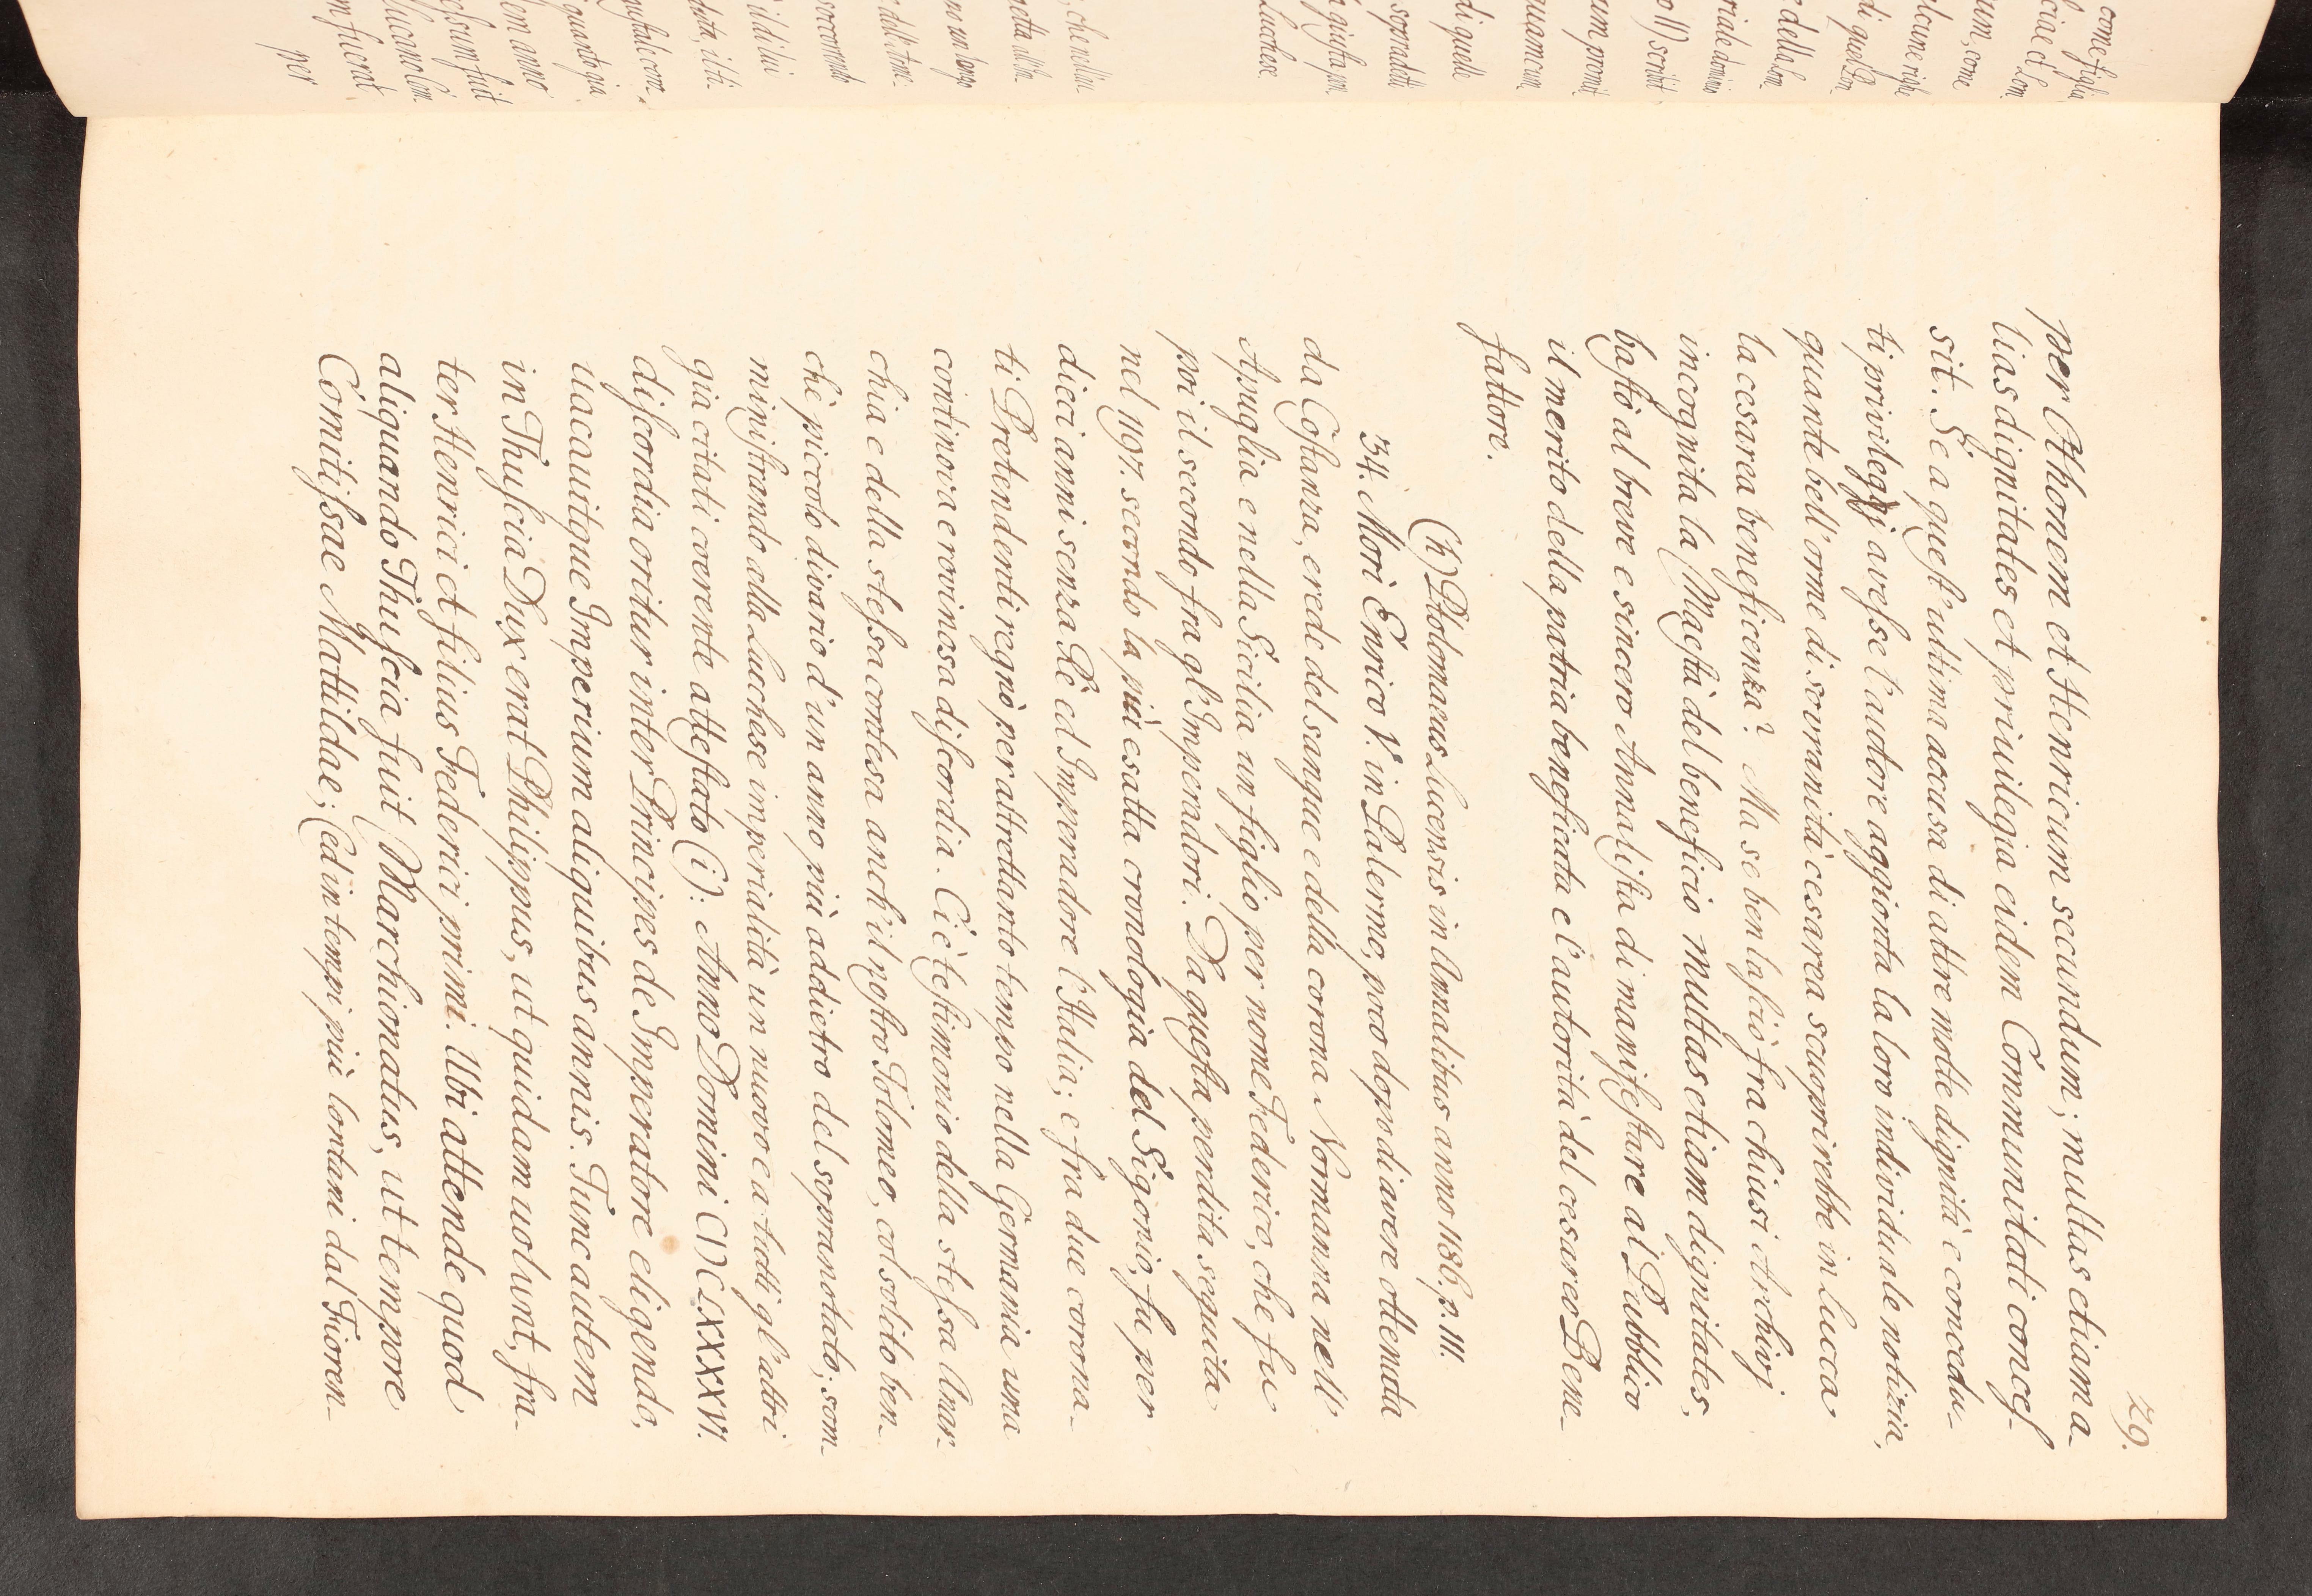 79.
per Othonem et Henricum secundum; multas etiam a-
lias dignitates et priuilegia eidem Communitati concef-
sit. Se a quest' ultima accusa di altre molte dignità e concedu-
ti privilegj avesse l'autore aggionta la loro individuale notizia,
quante bell'orme di sovranità cesarea scuoprirebbe in Lucca
la cesarea beneficenza? Ma se ben lasciò fra chiusi Archivj
incognita la Maestà del beneficio multas etiam dignitates,
bastò al breve e sincero Annalista di manifestare al Pubblico
il merito della patria beneficata e l'autorità del cesareo Bene-
fattore.
(h) Ptolomaeus Lucensis in Annalibus anno 1186. p. 111.
34. Morì Enrico V. in Palermo, poco dopo di avere ottenuta
da Costanza, erede del sangue e della corona Normanna nell'
Apuglia e nella Sicilia un figlio per nome Federico, che fu
poi il secondo fra gl'Imperadori. Da questa perdita seguita
nel 1197. secondo la più esatta cronologia del Sigonio, fu per
dieci anni senza Rè ed Imperadore l'Italia; e fra due corona-
ti Pretendenti regnò per altrettanto tempo nella Germania una
continova e rovinosa discordia. Ci è testimonio della stessa Anar-
chia e della stessa contesa anch'il nostro Tolomeo, col solito ben-
chè piccolo divario d'un anno più addietro del sopranotato; som-
ministrando alla Lucchese imperialità un nuovo e a tutti gl'altri
già citati coerente attestato (i): Anno Domini MCLXXXXVI.
discordia oritur inter Principes de Imperatore eligendo;
uacauitque Imperium aliquibus annis. Tunc autem
in Thuscia Dux erat Philippus, ut quidam uolunt, fra-
ter Henrici et filius Federici primi. Ubi attende quod
aliquando Thuscia fuit Marchionatus, ut tempore
Comitissae Matildae; (ed in tempi più lontani dal Fioren-
come figlia
um, come
alcune righe
e della Lom-
) scribit
di quelle
Lucchese.
soccorrendo
quando qui
em anno
m fuerat
per